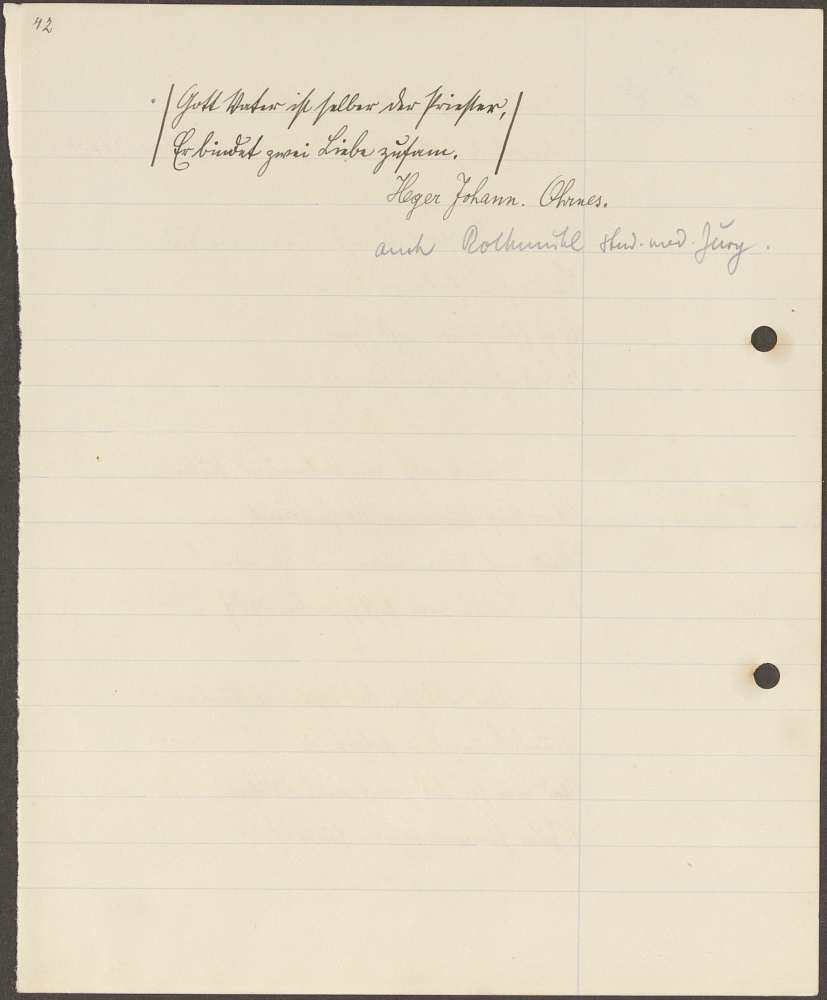 42
|: Gott Vater ist selber der Priester, :|
Er bindet zwei Liebe zusam.
Heger Johann. Ohrnes.
auch Rothmühl stud. med. Jury.